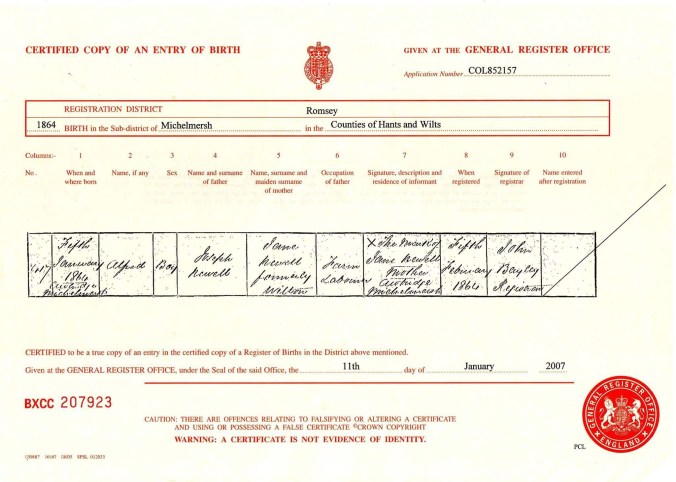 CERTIFIED COPY OF AN ENTRY OF BIRTH
GIVEN AT THE GENERAL REGISTER OFFICE
Application Number COL852157
REGISTRATION DISTRICT Romsey
1864 BIRTH in the Sub-district of Michelmersh in the Counties of Hants and Wilts
Columns:- 1 2 3 4 5 6 7 8 9 10
No. When and where born Name, if any Sex Name and surname of father Name, surname and maiden surname of mother Occupation of father Signature, description and residence of informant When registered Signature of registrar Name entered after registration
Fifth January 1864 Awbridge Michelmersh
Alfred
Boy
Joseph Newell
Jane Newell formerly Wilton
Farm Labourer
X The Mark of Jane Newell Mother Awbridge Michelmersh
Fifth February 1864
John Bayley Registrar
CERTIFIED to be a true copy of an entry in the certified copy of a Register of Births in the District above mentioned.
Given at the GENERAL REGISTER OFFICE, under the Seal of the said Office, the 11th day of January 2007
BXCC 207923
CAUTION: THERE ARE OFFENCES RELATING TO FALSIFYING OR ALTERING A CERTIFICATE
AND USING OR POSSESSING A FALSE CERTIFICATE ©CROWN COPYRIGHT
WARNING: A CERTIFICATE IS NOT EVIDENCE OF IDENTITY.
GENERAL REGISTER OFFICE
ENGLAND
PCL